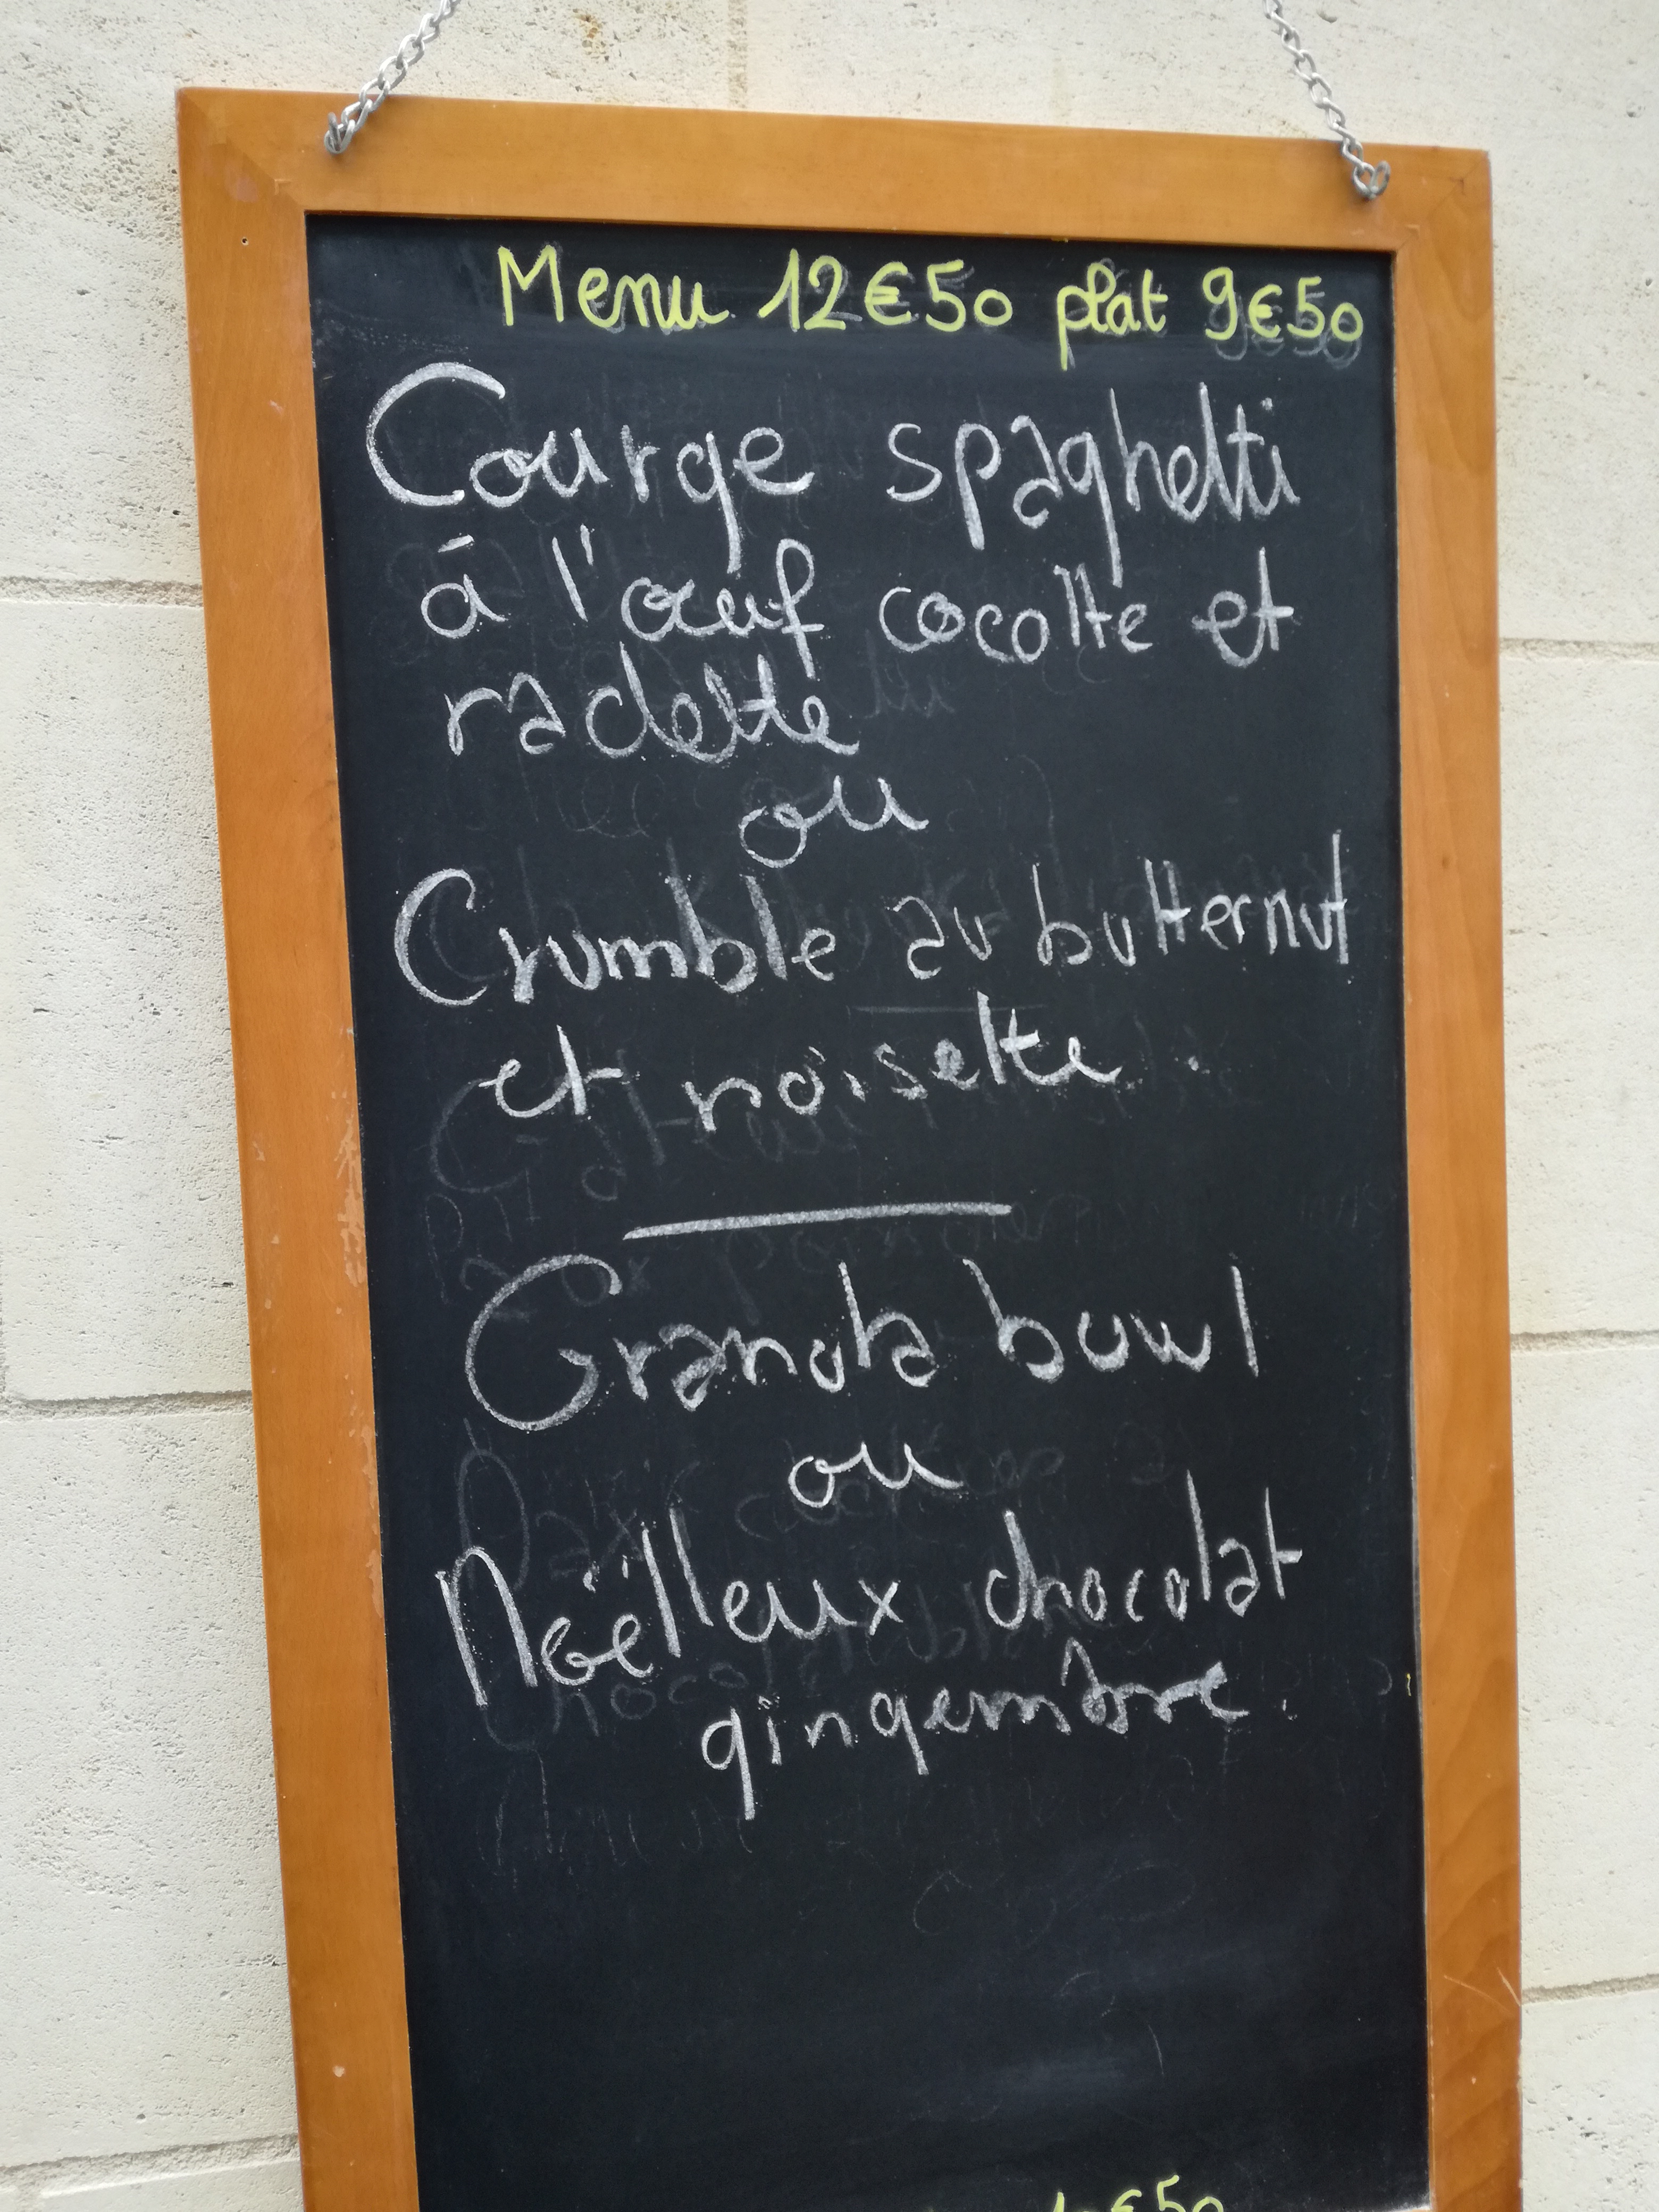 Menu 12€50 plat 9€50
Courge spaghetti
à l'œuf cocotte et
raclette
ou
Crumble au butternut
et noisette.
Granola bowl
ou
Moëlleux chocolat
gingembre.